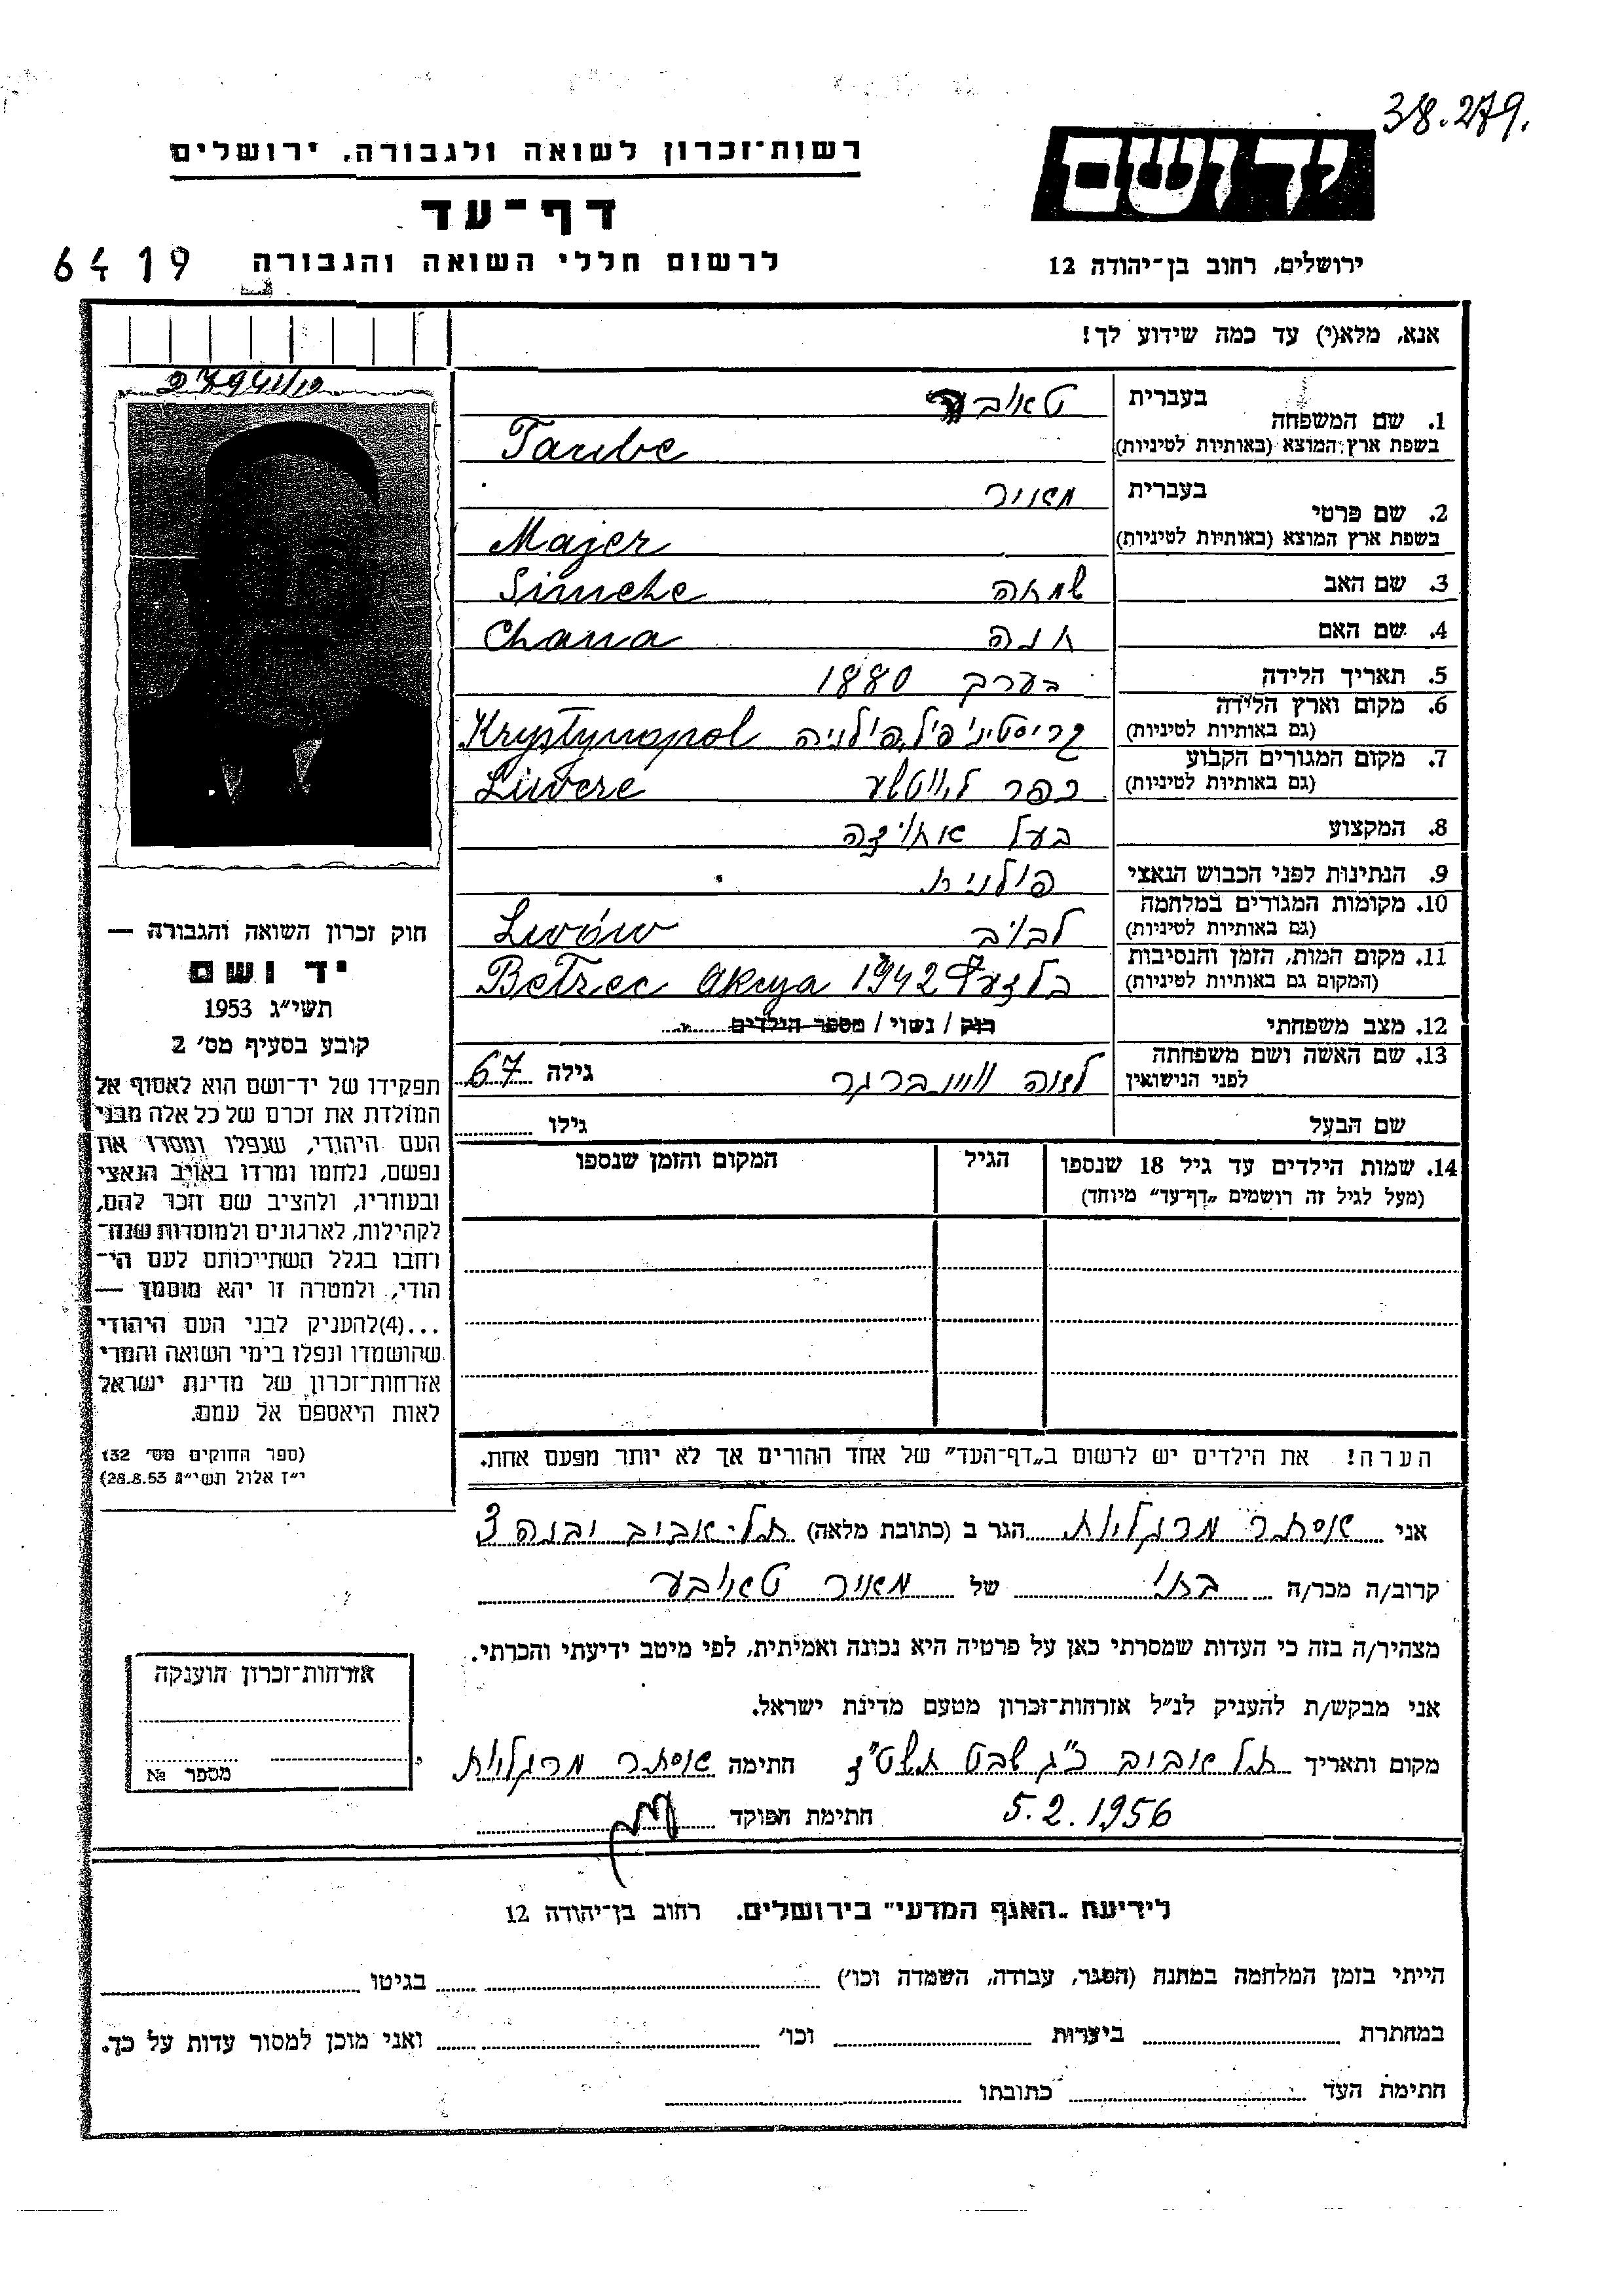 38.279.
יד ושם
רשות־זכרון לשואה ולגבורה, ירושלים
דף־עד
לרשום חללי השואה והגבורה
6419
ירושלים, רחוב בן־יהודה 12
אנא, מלא(י) עד כמה שידוע לך!
1. שם המשפחה
בעברית
Taube
בשפת ארץ המוצא (באותיות לטיניות)
2. שם פרטי
בעברית מאיר
בשפת ארץ המוצא (באותיות לטיניות) Majer
3. שם האב שמחה Simche
4. שם האם חנה Chana
5. תאריך הלידה בערך 1880
6. מקום וארץ הלידה Krystynopol
(גם באותיות לטיניות)
7. מקום המגורים הקבוע כפר
(גם באותיות לטיניות)
8. המקצוע בעל אחוזה
9. הנתינות לפני הכבוש הנאצי פולנית
10. מקומות המגורים במלחמה לבוב Lwów
(גם באותיות לטיניות)
11. מקום המות, הזמן והנסיבות 1942
(המקום גם באותיות לטיניות)
12. מצב משפחתי רוק / נשוי / מספר הילדים
13. שם האשה ושם משפחתה
לפני הנישואין
גילה 67
שם הבעל גילו
14. שמות הילדים עד גיל 18 שנספו הגיל המקום והזמן שנספו
(מעל לגיל זה רושמים „דף־עד” מיוחד)
הערה! את הילדים יש לרשום ב„דף־העד” של אחד ההורים אך לא יותר מפעם אחת.
חוק זכרון השואה והגבורה —
יד ושם
תשי״ג 1953
קובע בסעיף מס׳ 2
תפקידו של יד־ושם הוא לאסוף אל
המולדת את זכרם של כל אלה מבני
העם היהודי, שנפלו ומסרו את
נפשם, נלחמו ומרדו באויב הנאצי
ובעוזריו, ולהציב שם וזכר להם,
לקהילות, לארגונים ולמוסדות שנח־
רחבו בגלל השתייכותם לעם הי־
הודי, ולמטרה זו יהא מוסמך —
...(4)להעניק לבני העם היהודי
שהושמדו ונפלו בימי השואה והמרי
אזרחות־זכרון של מדינת ישראל
לאות היאספם אל עמם.
(ספר החוקים מס׳ 132
י״ז אלול תשי״ג 28.8.53)
אני אסתר מרגליות הגר ב (כתובת מלאה) תל־אביב יבנה 3
קרוב/ה מכר/ה בתו של מאיר טאובע
מצהיר/ה בזה כי העדות שמסרתי כאן על פרטיה היא נכונה ואמיתית, לפי מיטב ידיעתי והכרתי.
אני מבקש/ת להעניק לנ״ל אזרחות־זכרון מטעם מדינת ישראל.
מקום ותאריך תל אביב כ״ג שבט תשט״ז חתימה אסתר מרגליות
5.2.1956
חתימת הפוקד
אזרחות־זכרון הוענקה
מספר №
לידיעת „האגף המדעי” בירושלים. רחוב בן־יהודה 12
הייתי בזמן המלחמה במחנה (הסגר, עבודה, השמדה וכו׳) בגיטו
במחתרת ביערות וכו׳ ואני מוכן למסור עדות על כך.
חתימת העד כתובתו